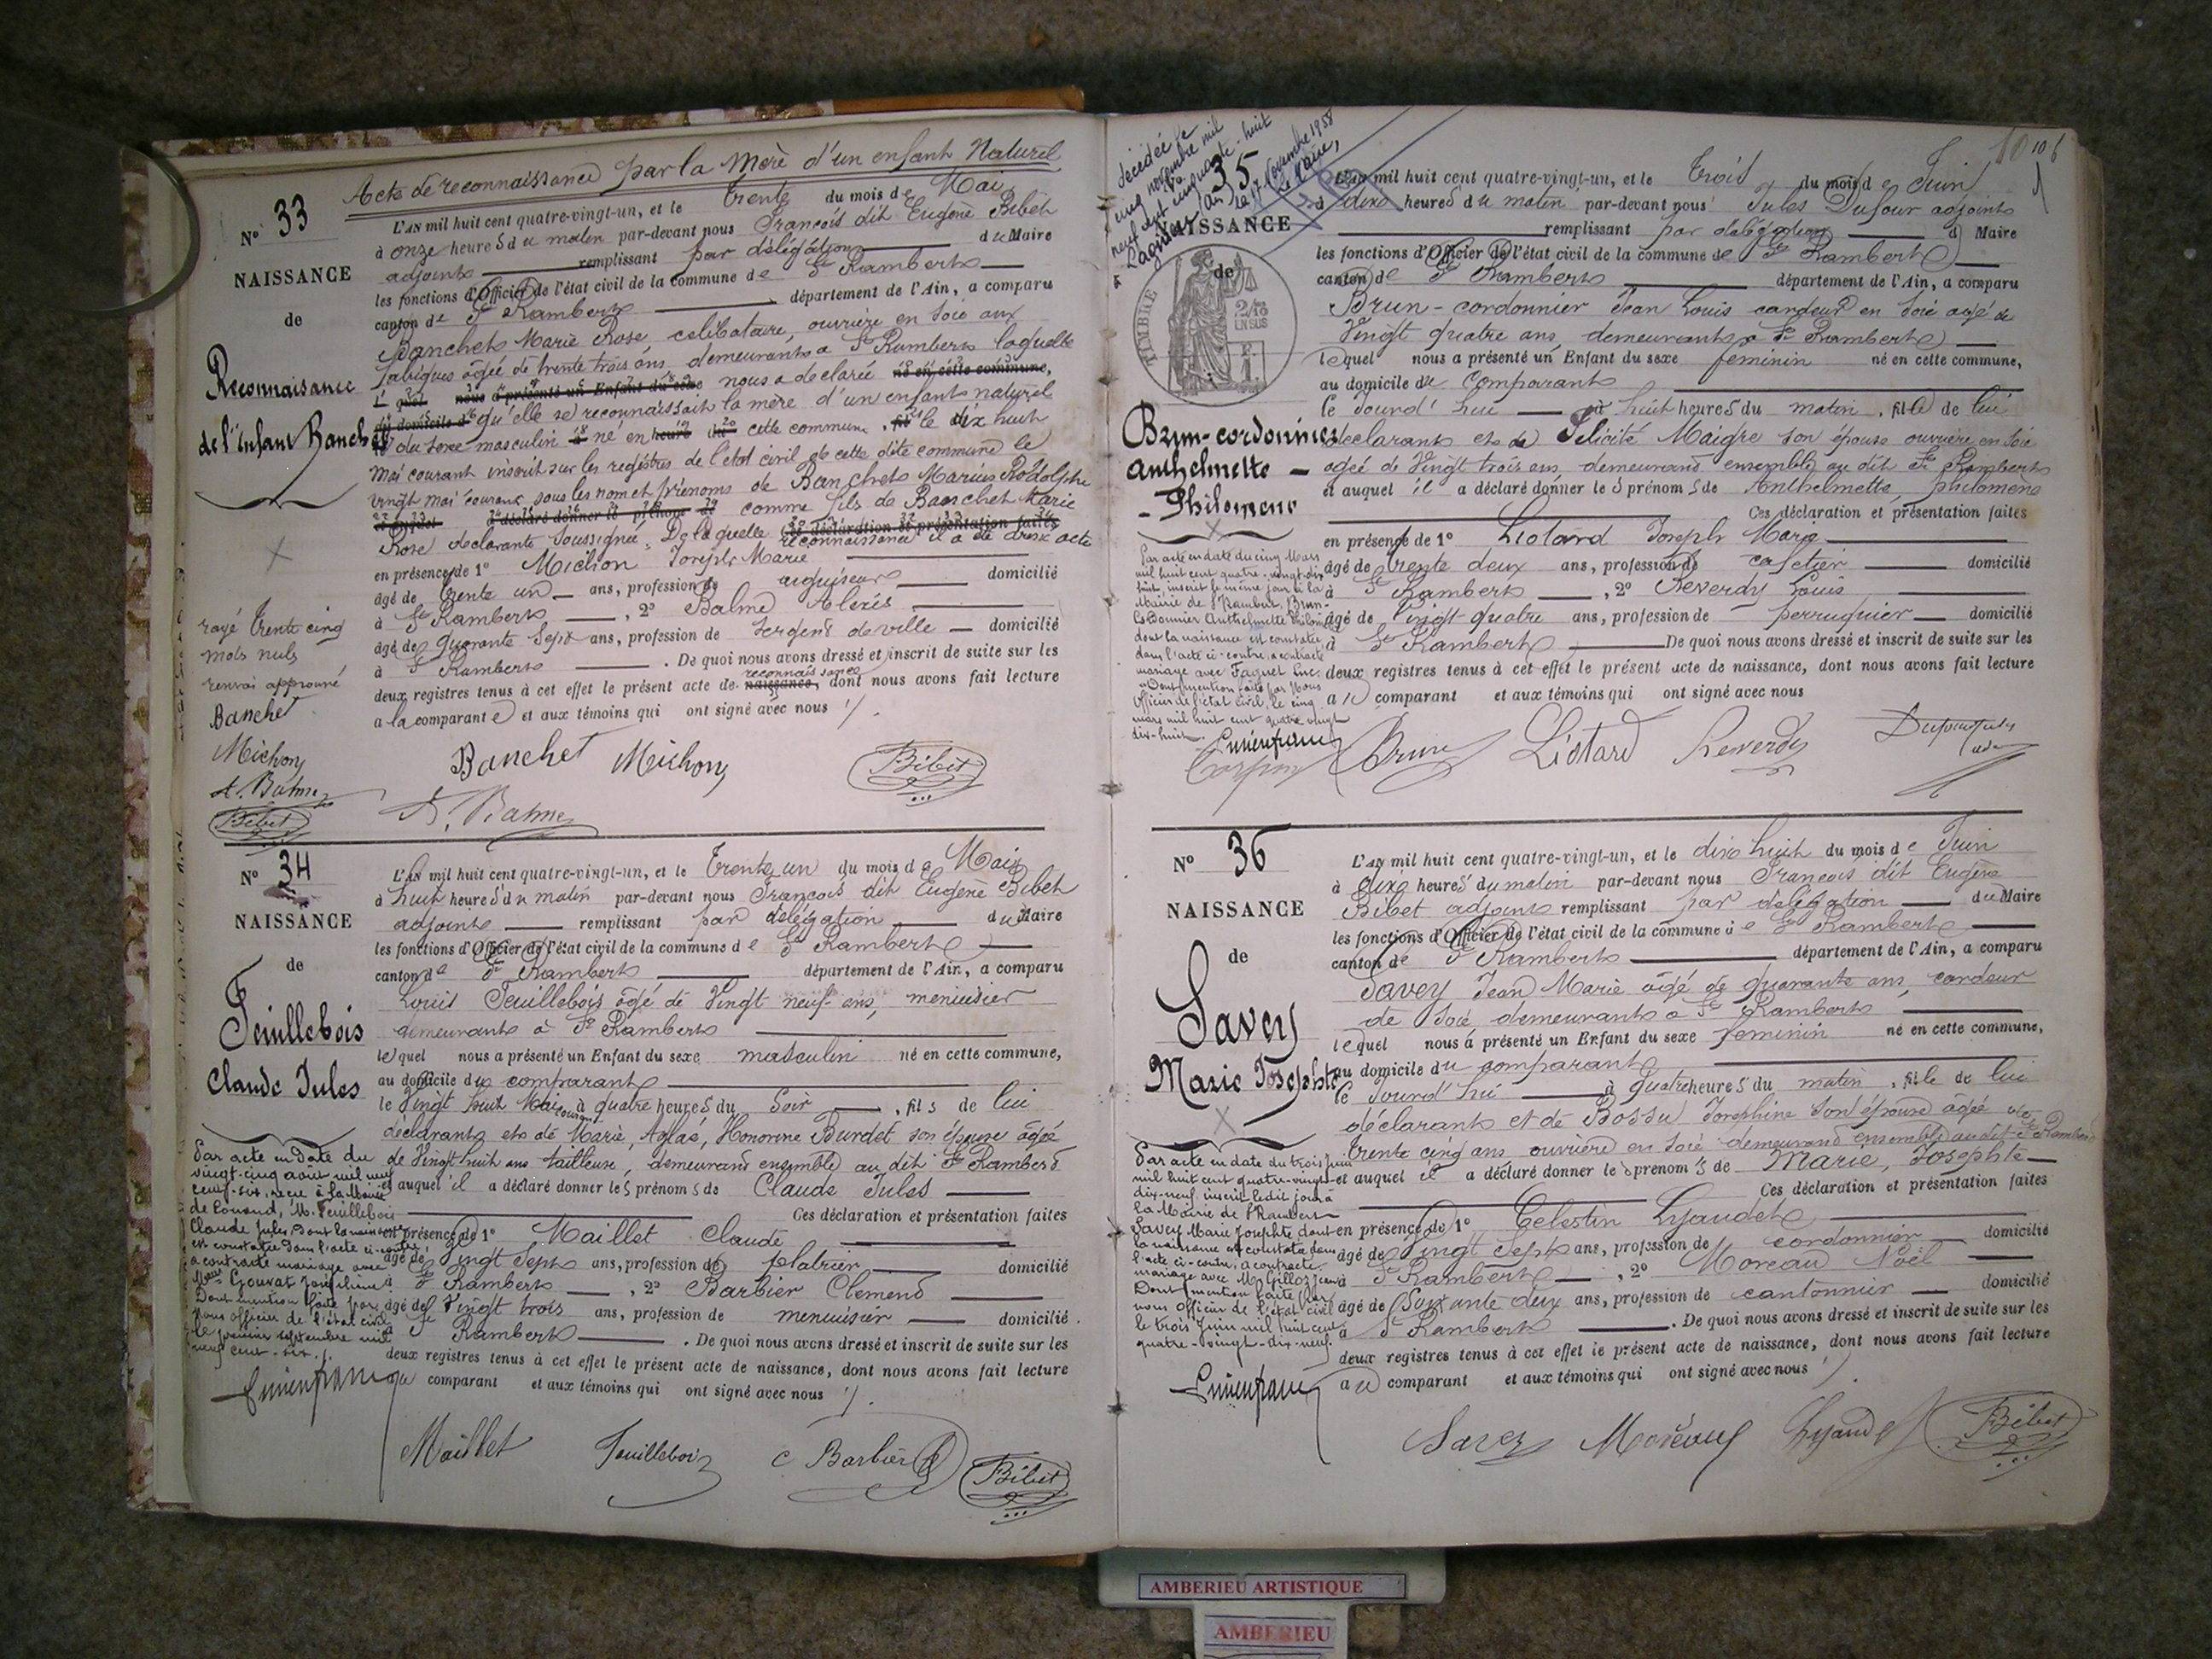 Acte de reconnaissance par la Mère d'un enfant Naturel
N° 33
NAISSANCE
de
Reconnaissance
de l'enfant Banchet
L'AN mil huit cent quatre-vingt-un, et le trente du mois de Mai
à onze heures du matin par-devant nous François dit Eugène Bibet
adjoint remplissant par délégation du Maire
les fonctions d'Officier de l'état civil de la commune de St Rambert
canton de St Rambert département de l'Ain, a comparu
Banchet Marie Rose, celibataire, ouvrière en soie aux
fabriques âgée de trente trois ans demeurant à St Rambert laquelle
l quel nous a présenté un Enfant du sexe nous a declaré né en cette commune,
au domicile d qu'elle se reconnaissait la mère d'un enfant naturel
du sexe masculin né en cette commune, le dix huit
mai courant inscrit sur les registres de l'etat civil de cette dite commune le
vingt mai courant sous les nom et prénoms de Banchet Marius Rodolphe
et auquel a déclaré donner le prénom de comme fils de Banchet Marie
Rose declarante soussignée. De laquelle reconnaissance il a été dressé acte
en présence de 1° Michon Joseph Marie
âgé de trente un ans, profession de aiguiseur domicilié
à St Rambert, 2° Balme Alexis
âgé de quarante sept ans, profession de sergent de ville domicilié
à St Rambert. De quoi nous avons dressé et inscrit de suite sur les
deux registres tenus à cet effet le présent acte de naissance, reconnaissance dont nous avons fait lecture
a la comparante et aux témoins qui ont signé avec nous
rayé trente cinq
mots nuls
renvoi approuvé
Banchet
Michon
A. Balme
Bibet
Banchet Michon Bibet
A. Balme
N° 34
NAISSANCE
de
Feuillebois
Claude Jules
L'AN mil huit cent quatre-vingt-un, et le trente un du mois de Mai
à huit heures du matin par-devant nous François dit Eugène Bibet
adjoint remplissant par délégation du Maire
les fonctions d'Officier de l'état civil de la commune de St Rambert
canton de St Rambert département de l'Ain, a comparu
Louis Feuillebois âgé de Vingt neuf ans, menuisier
demeurant à St Rambert
lequel nous a présenté un Enfant du sexe masculin né en cette commune,
au domicile du comparant
le Vingt huit Mai courant à quatre heures du soir, fils de lui
déclarant et de Marie, Aglaé, Honorine Burdet son épouse âgée
de Vingt huit ans tailleuse, demeurand ensemble au dit St Rambert
et auquel il a déclaré donner les prénoms de Claude Jules
Ces déclaration et présentation faites
en présence de 1° Maillet Claude
âgé de Vingt Sept ans, profession de platrier domicilié
à St Rambert, 2° Barbier Clemend
âgé de Vingt trois ans, profession de menuisier domicilié
à St Rambert. De quoi nous avons dressé et inscrit de suite sur les
deux registres tenus à cet effet le présent acte de naissance, dont nous avons fait lecture
au comparant et aux témoins qui ont signé avec nous
Par acte en date du
vingt-cinq août mil neuf
cent-six, reçu à la Mairie
de M. Feuillebois
Claude Jules, dont la naissance
est constatée dans l'acte ci-contre,
a contracté mariage avec
Gouvat Joséphine
Dont mention faite par
nous officier de l'état civil
le premier septembre mil
neuf cent-six.
Maillet Feuillebois C Barbier Bibet
106
décédée
le cinq novembre mil
neuf cent cinquante-huit
à Lagnieu (Ain)
le 17 Novembre 1958
Le Maire,
35
NAISSANCE
de
TIMBRE
2/10
EN SUS
Brun-cordonnier
Anthelmette
Philomene
L'AN mil huit cent quatre-vingt-un, et le trois du mois de Juin
à dix heures du matin par-devant nous Jules Dufour adjoint
remplissant par délégation d Maire
les fonctions d'Officier de l'état civil de la commune de St Rambert
canton de St Rambert département de l'Ain, a comparu
Brun-cordonnier Jean Louis cardeur en soie agé de
Vingt quatre ans, demeurant à St Rambert
lequel nous a présenté un Enfant du sexe feminin né en cette commune,
au domicile du comparant
le Jourd'hui à huit heures du matin, fille de lui
declarant et de Félicité Maigre son épouse ouvrière en soie
agée de Vingt trois ans, demeurand ensemble au dit St Rambert
et auquel il a déclaré donner les prénoms de Anthelmette, philomène
Ces déclaration et présentation faites
en présence de 1° Liotard Joseph Marie
âgé de trente deux ans, profession de cafetier domicilié
à St Rambert, 2° Reverdy Louis
âgé de Vingt-quatre ans, profession de perruquier domicilié
à St Rambert De quoi nous avons dressé et inscrit de suite sur les
deux registres tenus à cet effet le présent acte de naissance, dont nous avons fait lecture
au comparant et aux témoins qui ont signé avec nous
Par acte en date du cinq Mars
mil huit cent quatre-vingt-dix
huit, inscrit le même jour à la
Mairie de St Rambert, Brun-
Cordonnier Anthelmette Philomène
dont la naissance est constatée
dans l'acte ci-contre, a contracté
mariage avec Faguet Luc.
Dont mention faite par Nous
Officier de l'état civil, le cinq
mars mil huit cent quatre vingt
dix-huit.
Brun Liotard Reverdy Dufour Jules
N° 36
NAISSANCE
de
Savey
Marie Josephte
L'AN mil huit cent quatre-vingt-un, et le dix huit du mois de Juin
à dix heures du matin par-devant nous François dit Eugène
Bibet adjoint remplissant par délégation du Maire
les fonctions d'Officier de l'état civil de la commune de St Rambert
canton de St Rambert département de l'Ain, a comparu
Savey Jean Marie âgé de quarante ans, cardeur
de soie demeurant à St Rambert
lequel nous a présenté un Enfant du sexe feminin né en cette commune,
au domicile du comparant
le Jourd'hui à quatre heures du matin, fille de lui
déclarant et de Bossu Josephine son épouse âgée de
trente cinq ans ouvrière en soie demeurand ensemble au dit St Rambert
et auquel il a déclaré donner les prénoms de Marie, Josephte
Ces déclaration et présentation faites
en présence de 1° Celestin Lyaudet
âgé de Vingt Sept ans, profession de cordonnier domicilié
à St Rambert, 2° Moreau Noël
âgé de Soixante deux ans, profession de cantonnier domicilié
à St Rambert. De quoi nous avons dressé et inscrit de suite sur les
deux registres tenus à cet effet le présent acte de naissance, dont nous avons fait lecture
au comparant et aux témoins qui ont signé avec nous
Par acte en date du trois Juin
mil huit cent quatre-vingt-
dix-neuf, inscrit ledit jour à
la Mairie de St Rambert
Savey Marie Josephte dont
la naissance est constatée dans
l'acte ci-contre, a contracté
mariage avec Mr Gilloz Jean
Dont mention faite par
nous Officier de l'état civil
le trois Juin mil huit cent
quatre-vingt-dix-neuf.
Savey Moreau Lyaudet Bibet
AMBERIEU ARTISTIQUE
AMBERIEU